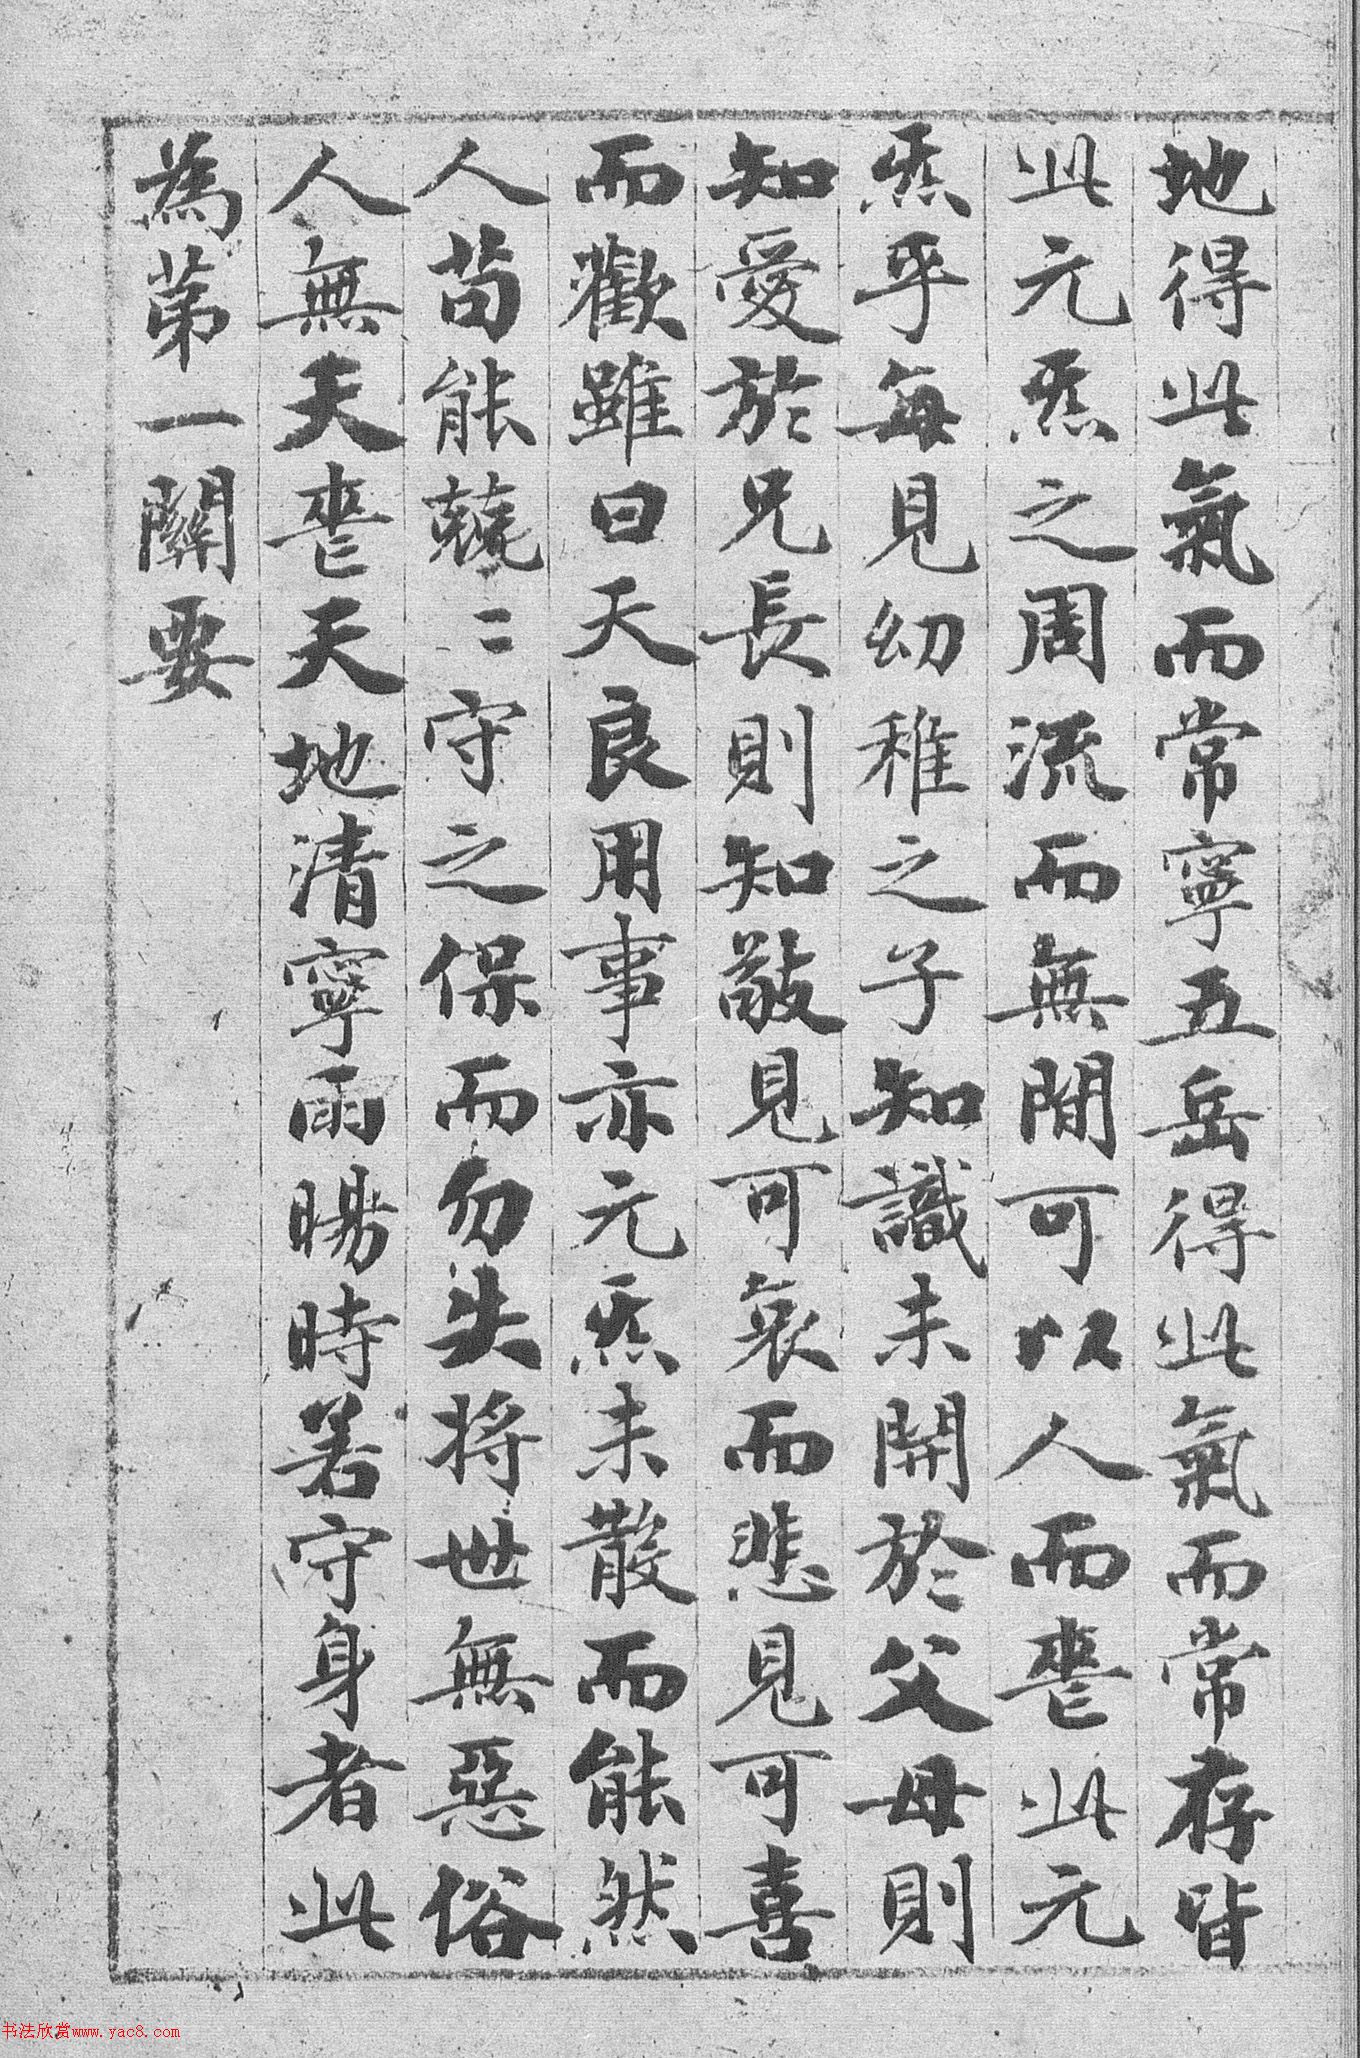 地得此氣而常寧五岳得此氣而常存皆
此元炁之周流而無閒可以人而喪此元
炁乎每見幼稚之子知識未開於父母則
知愛於兄長則知敬見可哀而悲見可喜
而歡雖曰天良用事亦元炁未散而能然
人苟能兢〻守之保而勿失將世無惡俗
人無夭喪天地清寧雨暘時若守身者此
為第一關要
书法欣赏www.yac8.com